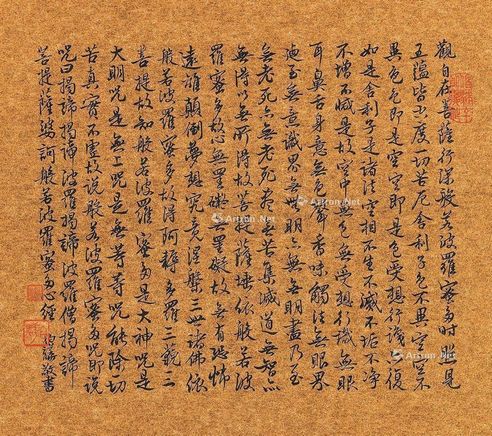 觀自在菩薩行深般若波羅蜜多時照見
五蘊皆空度一切苦厄舍利子色不異空空不
異色色即是空空即是色受想行識亦復
如是舍利子是諸法空相不生不滅不垢不淨
不增不減是故空中無色無受想行識無眼
耳鼻舌身意無色聲香味觸法無眼界
乃至無意識界無無明亦無無明盡乃至
無老死亦無老死盡無苦集滅道無智亦
無得以無所得故菩提薩埵依般若波
羅蜜多故心無罣礙無罣礙故無有恐怖
遠離顛倒夢想究竟涅槃三世諸佛依
般若波羅蜜多故得阿耨多羅三藐三
菩提故知般若波羅蜜多是大神咒是
大明咒是無上咒是無等等咒能除一切
苦真實不虛故說般若波羅蜜多咒即說
咒曰揭諦揭諦波羅揭諦波羅僧揭諦
菩提薩婆訶般若波羅蜜多心經
敬書
Artron.Net